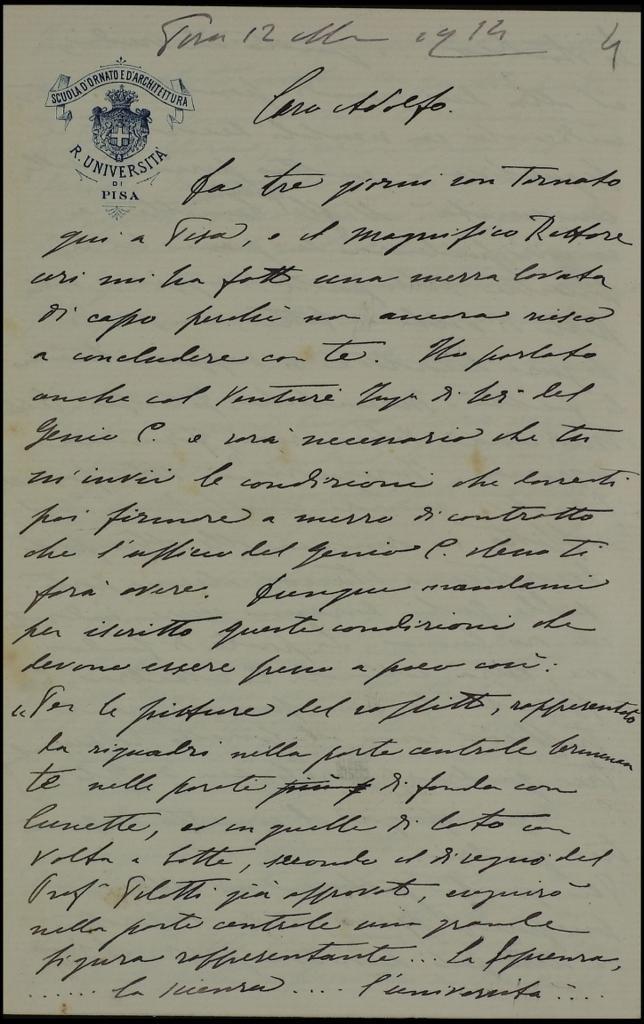 Pisa 12 1914
4
SCUOLA D'ORNATO E D'ARCHITETTURA
R. UNIVERSITÀ
DI
PISA
Caro Adolfo.
Da tre giorni son Tornato
qui a Pisa, e il Magnifico Rettore
ieri mi ha fatt una mezza lavata
di capo perchè non ancora riesco
a concludere con te. Ho parlato
anche col Venturi Ing. di del
Genio C. e sarà necessario che tu
m'invii le condizioni che dovresti
poi firmare a mezzo di contratto
che l'ufficio del Genio C. stesso ti
farà avere. Dunque mandami
per iscritto queste condizioni che
devono essere presso a poco così:
"Per le pitture del soffitto, rappresentato
da riquadri nella parte centrale terminan
te nelle pareti di fondo con
lunette, ed in quelle di lato con
volta a botte, secondo il disegno del
Prof. Pilotti già approvato, eseguirò
nella parte centrale una grande
figura rappresentante... La Sapienza,
...... la scienza.... l'università.....